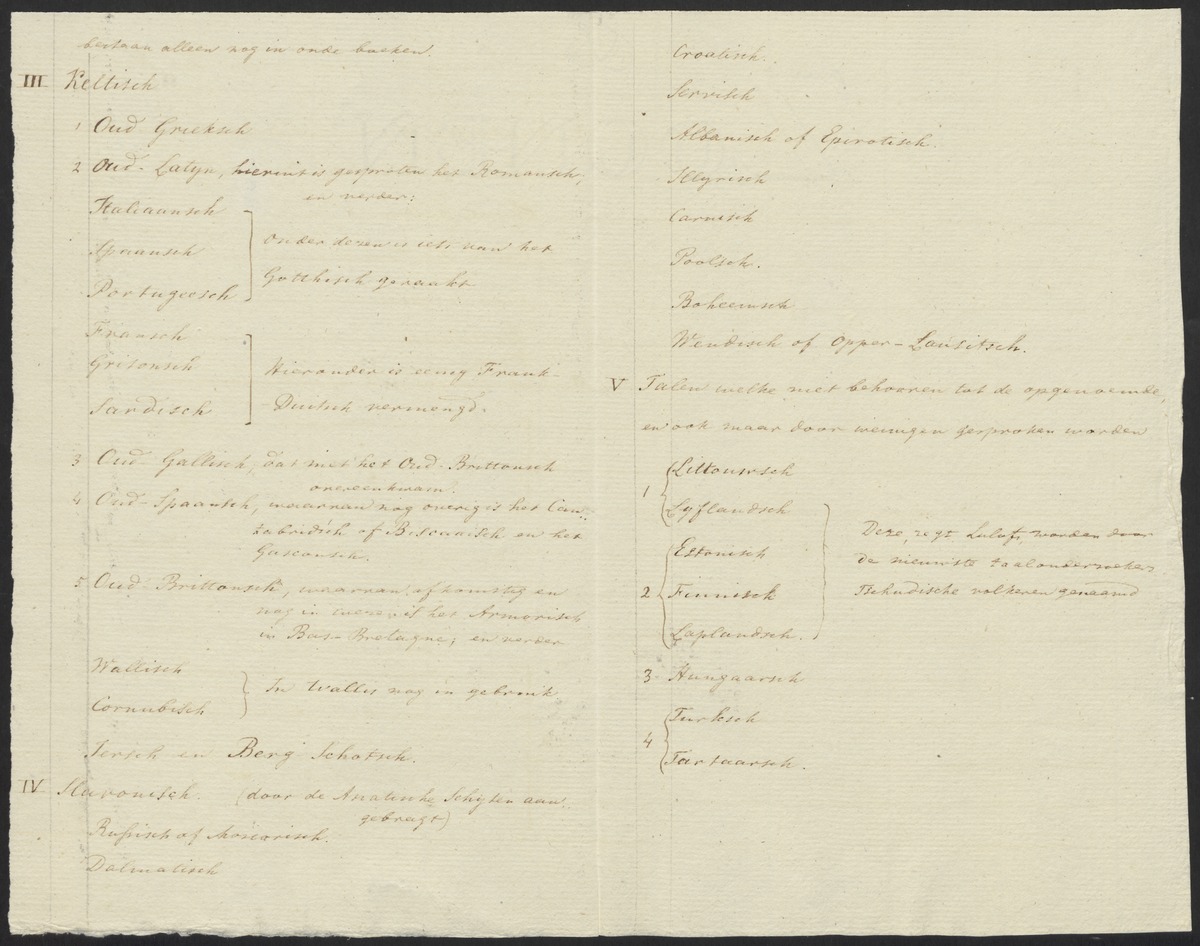 bestaan alleen nog in oude boeken.
III Keltisch
1 Oud Grieksch
2 Oud-Latyn, hieruit is gesproten het Romansch,
en verder:
Italiaansch
Spaansch
Portugeesch
Onder dezen is iets van het
Gotthisch geraakt
Fransch
Grisonsch
Sardisch
Hieronder is eenig Frank-
Duitsch vermengd.
3 Oud-Gallisch, dat met het Oud-Brittonsch
overeenkwam.
4 Oud-Spaansch, waarvan nog overig is het Can-
tabridisch of Biscaaisch en het
Gasconsch.
5 Oud-Brittonsch, waarvan afkomstig en
nog in weze is het Armorisch
in Bas-Bretagne; en verder
Wallisch
Cornubisch
In Wallis nog in gebruik
Iersch en Berg Schotsch.
IV Slavonisch. (door de Asiatische Schijten aan-
gebragt)
Russisch of Moscovisch.
Dalmatisch
Croatisch.
Servisch
Albanisch of Epirotisch.
Illyrisch
Carnisch
Poolsch.
Boheemsch
Wendisch of Opper-Lausitsch.
V Talen welke niet behooren tot de opgenoemde,
en ook maar door weinigen gesproken worden
1 Littouwsch
Lyflandsch
2 Estonisch
Finnisch
Laplandsch.
Deze, zegt Lulofs, worden door
de nieuwste taalonderzoekers
Tschudische volkeren genaamd
3 Hungaarsch
4 Turksch
Tartaarsch.